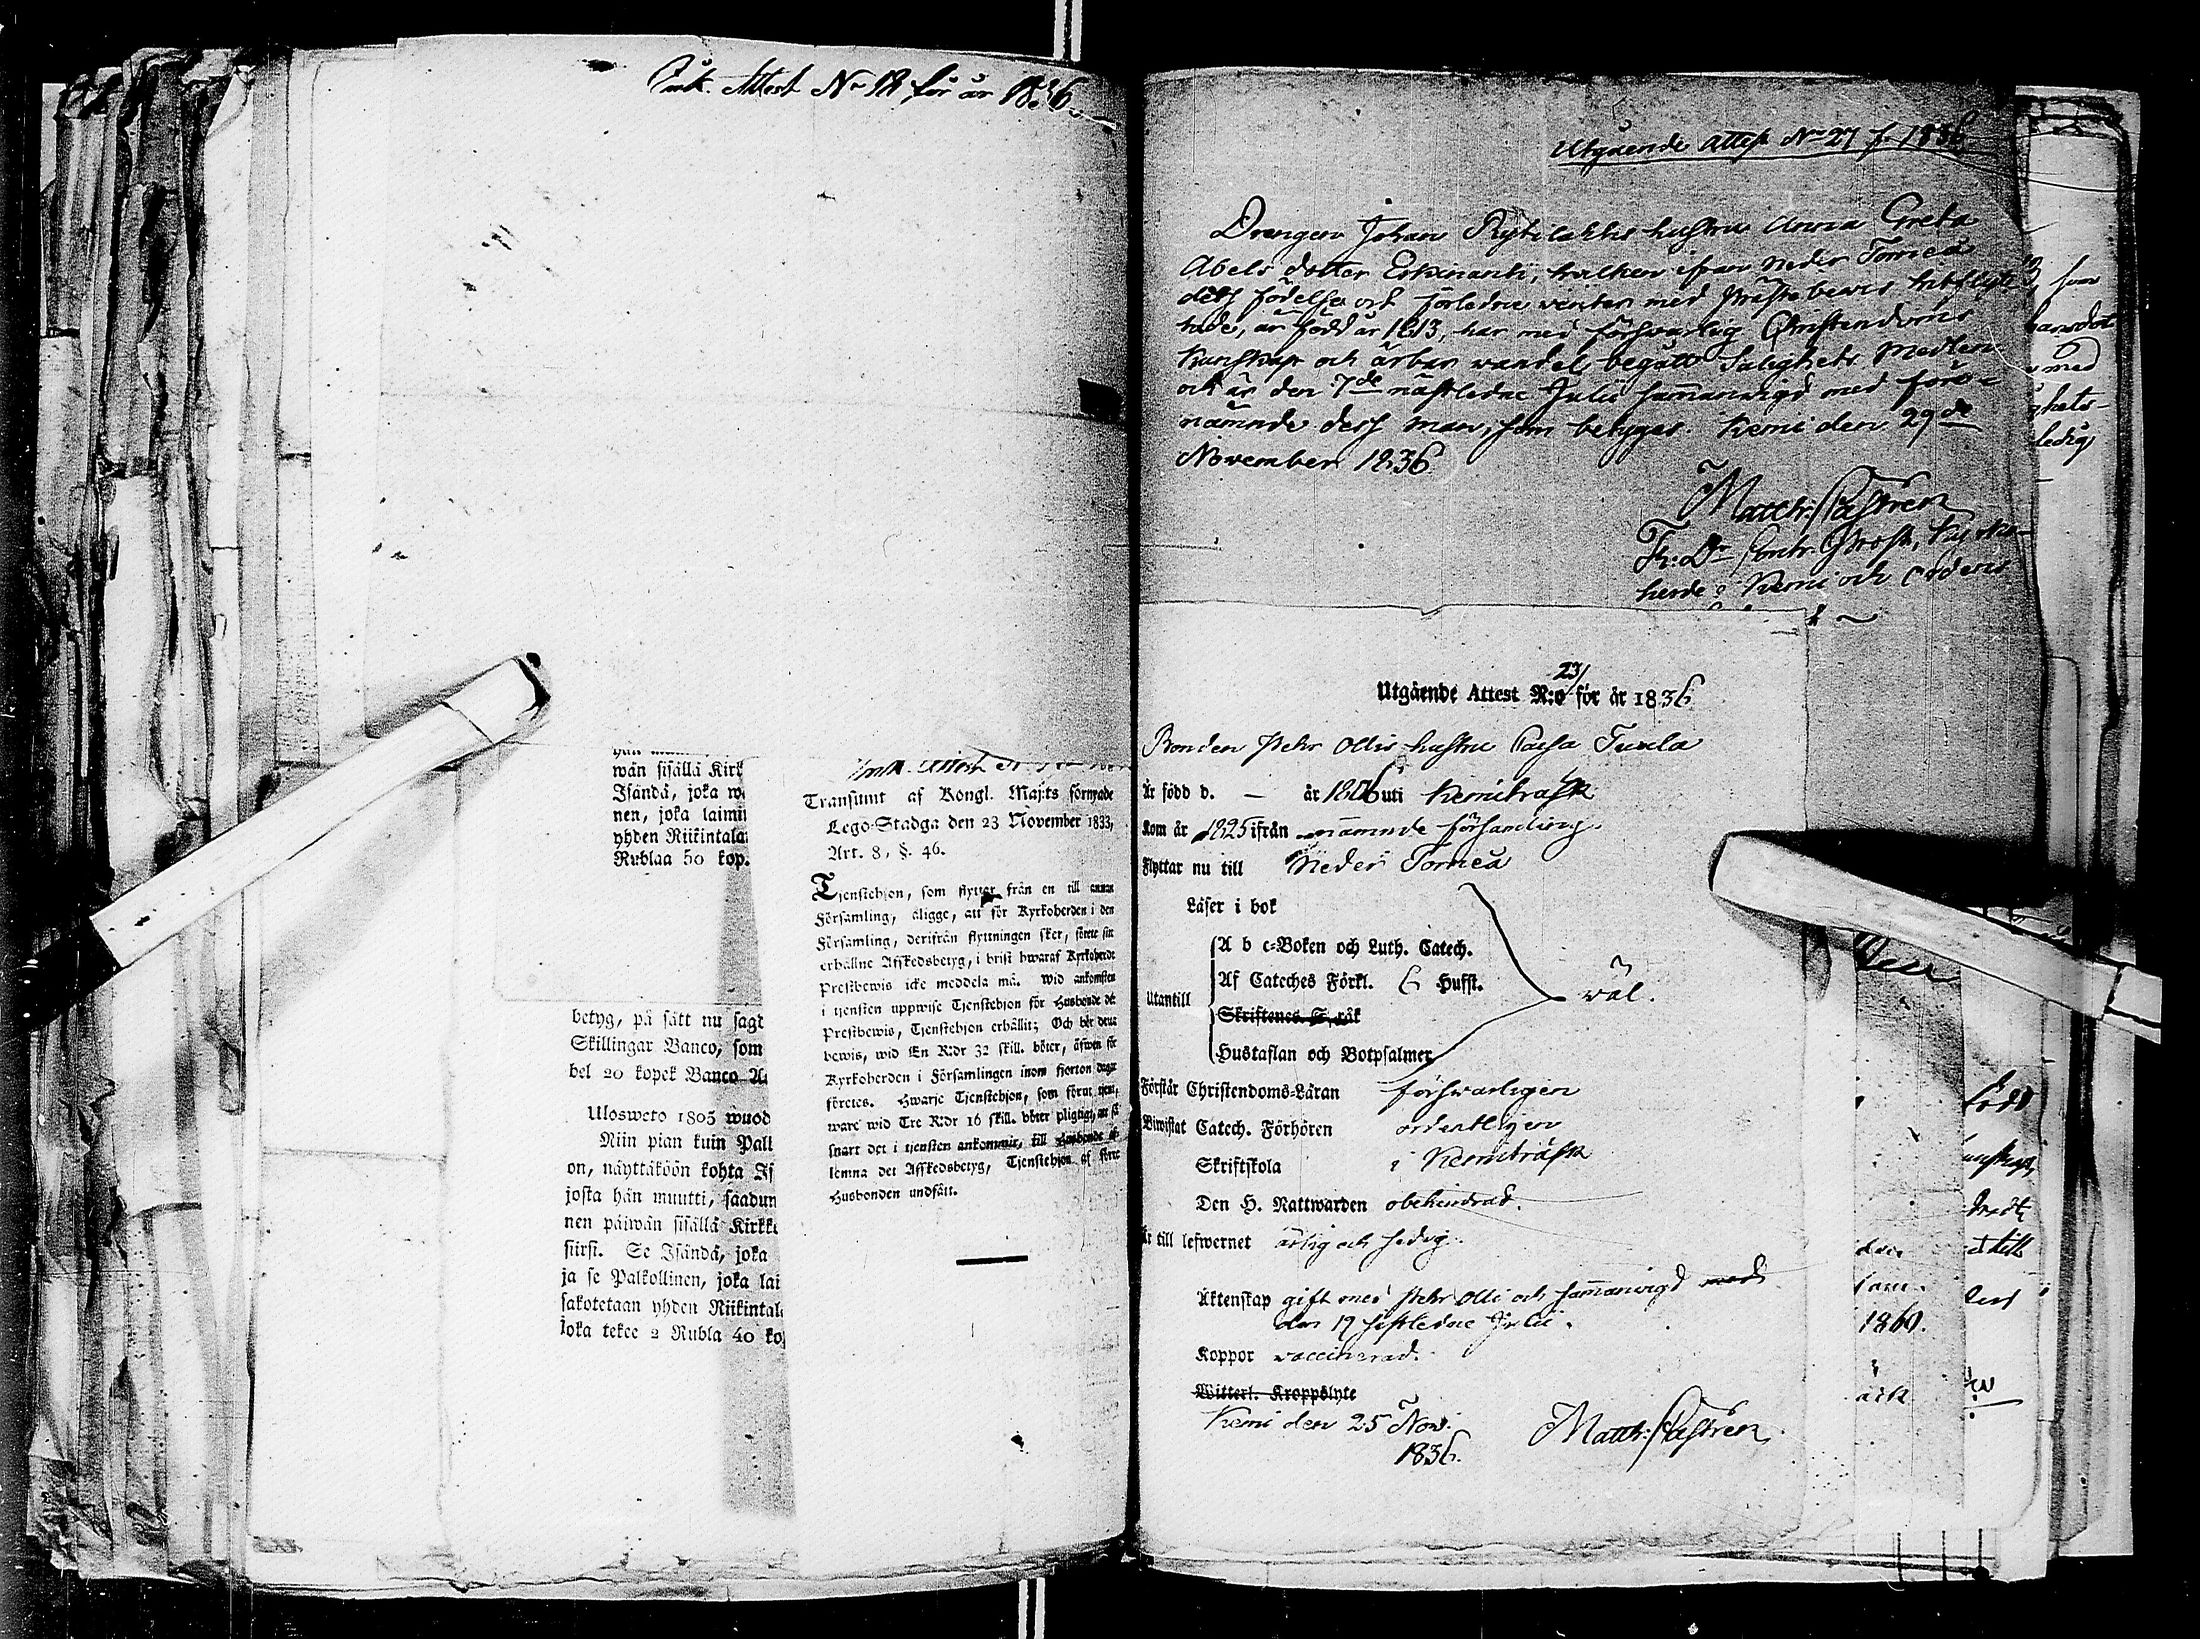 Ink. Attest No 18 för år 1836.
wän sisällä Kirk
Isändä, joka w
nen, joka laimi
yhden Riikintala
Rublaa 50 kop.
betyg, på sätt nu sagt
Skillingar Banco, som
bel 20 kopek Banco A
Ulosweto 1805 wuod
Niin pian kuin Pall
on, näyttäköön kohta Is
josta hän muutti, saadun
nen päiwän sisällä Kirkk
siirsi. Se Isändä, joka
ja se Palkollinen, joka lai
sakotetaan yhden Riikintal
joka tekee 2 Rubla 40 ko
Ink. Attest
Transumt af Kongl. Maj:ts förnyade
Lego-Stadga den 23 November 1833,
Art. 8, §. 46.
Tjenstehjon, som flyttar från en till annan
Församling, åligge, att för Kyrkoherden i den
Församling, derifrån flyttningen sker, förete sitt
erhållne Afskedsbetyg, i brist hwaraf Kyrkoherde
Prestbewis icke meddela må. Wid ankomsten
i tjensten uppwise Tjenstehjon för Husbonde det
Prestbewis, Tjenstehjon erhållit; Och bör detta
bewis, wid En R:dr 32 skill. böter, äfwen för
Kyrkoherden i Församlingen inom fjorton dagar
företes. Hwarje Tjenstehjon, som förut tjent,
ware wid Tre R:dr 16 skill. böter pligtigt, att så
snart det i tjensten ankommit, till Husbonde af-
lemna det Afskedsbetyg, Tjenstehjon af förre
Husbonden undfått.
Utgående Attest No 27 f. 1836
Drengen Johan Rytilahtis hustru Anna Greta
Abels dotter Erkinantti, hvilken ifrån Neder Torneå
dess födelse ort förledne vinter med Prästebevis hitflyt-
tade, är född år 1813, har med försvarlig Christendoms
Kunskap och ärbar vandel begått Salighets Medlen
och är den 7de nästledne Julii sammanvigd med före-
nämnde dess man, som betygas. Kemi den 29de
November 1836
Matth: Castrén
Th: Dr Contr. Prost, Kyrko-
herde i Kemi och Ordens
Utgående Attest N:o 23/ för år 1836
Bonden Pehr Ollis hustru Caisa Tuula
Är född d. — år 1806 uti Kemiträsk
Kom år 1825 ifrån nämnde församling.
Flyttar nu till Neder Torneå
Läser i bok
Utantill
A b c-Boken och Luth. Catech.
Af Cateches Förkl. 6 Hufst.
Skriftenes
Hustaflan och Botpsalmer
wäl.
Förstår Christendoms-Läran försvarligen
Biwistat Catech. Förhören ordentligen
Skriftskola i Kemiträsk
Den H. Nattwarden obehindrad.
Är till lefwernet ärlig och sedig.
Äktenskap gift med Pehr Olli och sammanvigd med
den 19 sistledne Julii.
Koppor vaccinerad.
Witterl. Kroppslyte
Kemi den 25 Nov.
1836.
Matth: Castrén
med
ledig
född
1860.